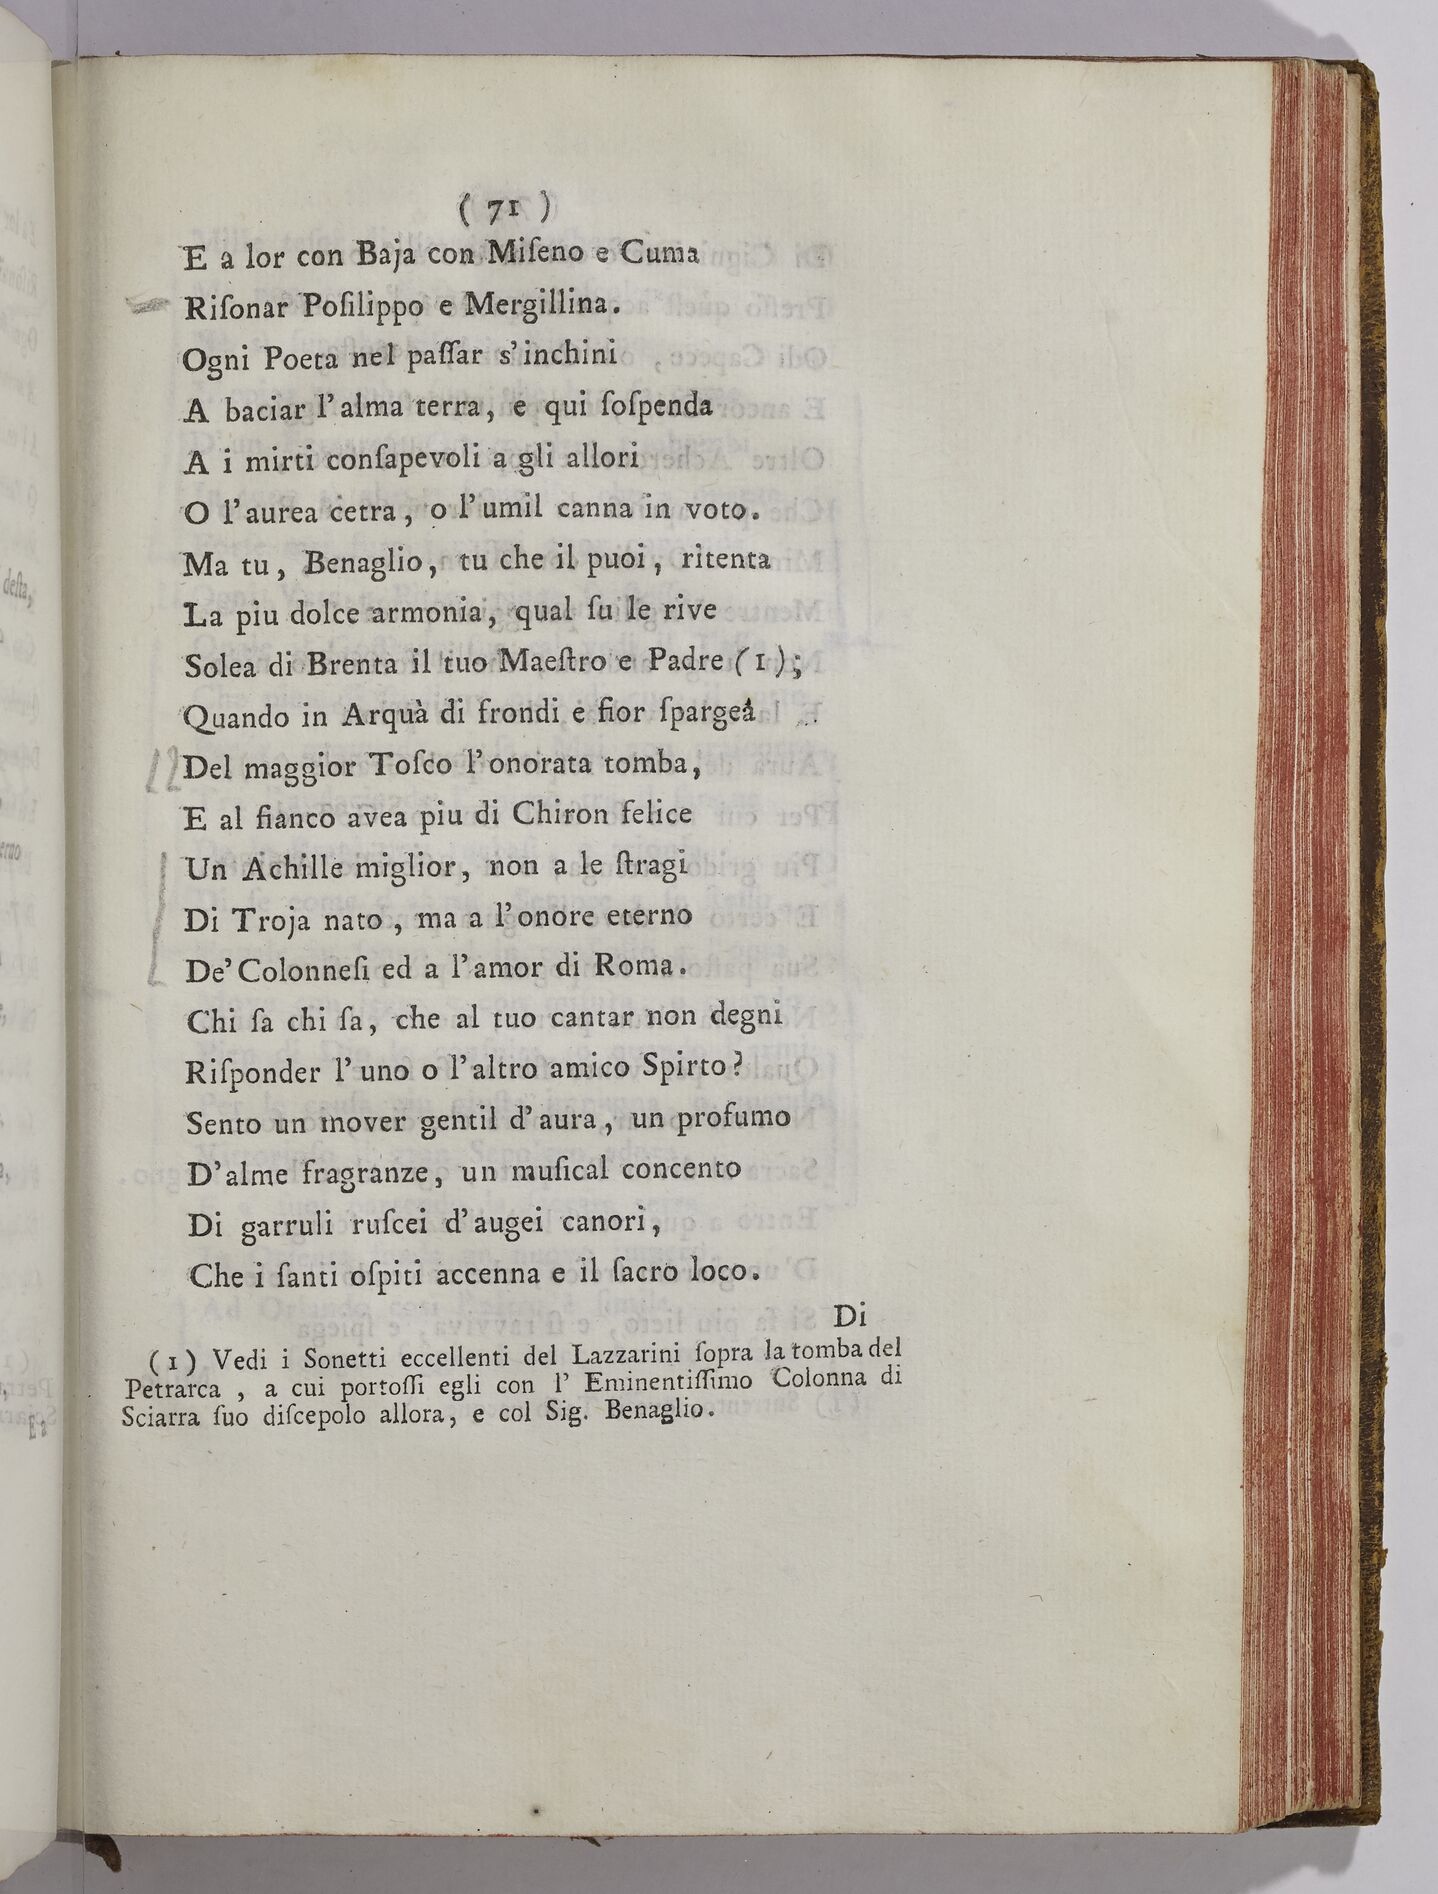 ( 71 )
E a lor con Baja con Miſeno e Cuma
Riſonar Poſilippo e Mergillina.
Ogni Poeta nel paſſar s'inchini
A baciar l'alma terra, e qui ſoſpenda
A i mirti conſapevoli a gli allori
O l'aurea cetra, o l'umil canna in voto.
Ma tu, Benaglio, tu che il puoi, ritenta
La piu dolce armonia, qual ſu le rive
Solea di Brenta il tuo Maeſtro e Padre (1);
Quando in Arquà di frondi e fior ſpargea
Del maggior Toſco l'onorata tomba,
E al fianco avea piu di Chiron felice
Un Achille miglior, non a le ſtragi
Di Troja nato, ma a l'onore eterno
De' Colonneſi ed a l'amor di Roma.
Chi ſa chi ſa, che al tuo cantar non degni
Riſponder l'uno o l'altro amico Spirto?
Sento un mover gentil d'aura, un profumo
D'alme fragranze, un muſical concento
Di garruli ruſcei d'augei canori,
Che i ſanti oſpiti accenna e il ſacro loco.
Di
(1) Vedi i Sonetti eccellenti del Lazzarini ſopra la tomba del
Petrarca, a cui portoſſi egli con l' Eminentiſſimo Colonna di
Sciarra ſuo diſcepolo allora, e col Sig. Benaglio.